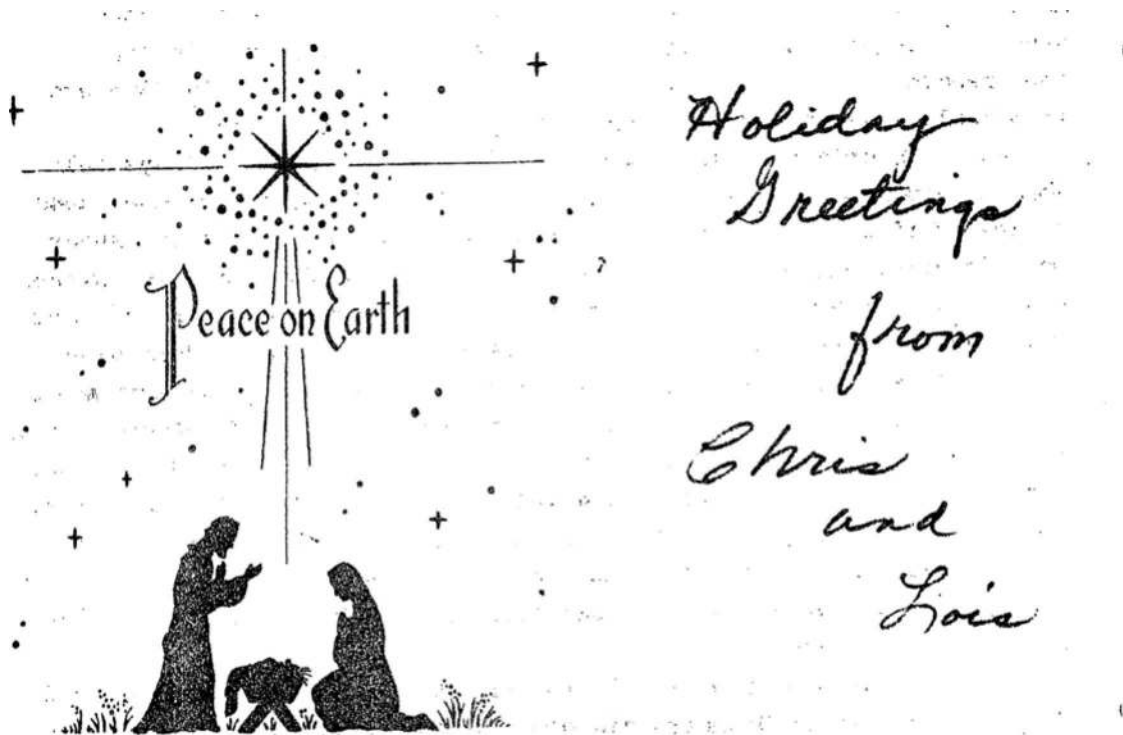 Peace on Earth
Holiday
Greetings
from
Chris
and
Lois